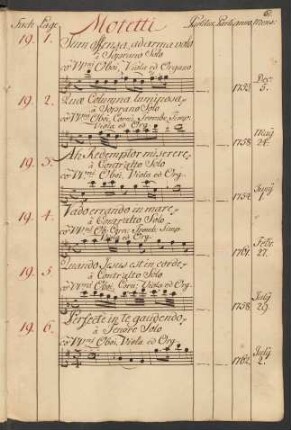 Fach Lage Motetti
19. 1.
Semi offensa, ad arma volo
à Soprano Solo
co VVni Oboi, Viola ed Organo
1753 Dec. 5.
19. 2.
Quæ Columna luminosa,
à Soprano Solo
co VVni Oboi, Corni, Trombe, Timp.
Viola ed Org.
1758 Maij 24.
19. 3.
Ah Redemptor miserere,
à Contralto Solo
co VVni Oboi, Viola ed Org.
1754 Junij 1.
19. 4.
Vado errando in mare,
à Contralto Solo
co VVni Ob: Corni, Tromb: Timp
Viola ed Org.
1761. Febr. 27.
19. 5.
Quando Jesus est in corde,
à Contralto Solo
co VVni Oboi, Corni, Viola ed Org.
1758 July 29.
19. 6.
Perfecte in te gaudendo,
à Tenore Solo
co VVni Oboi, Viola ed Org.
1762 July 2.